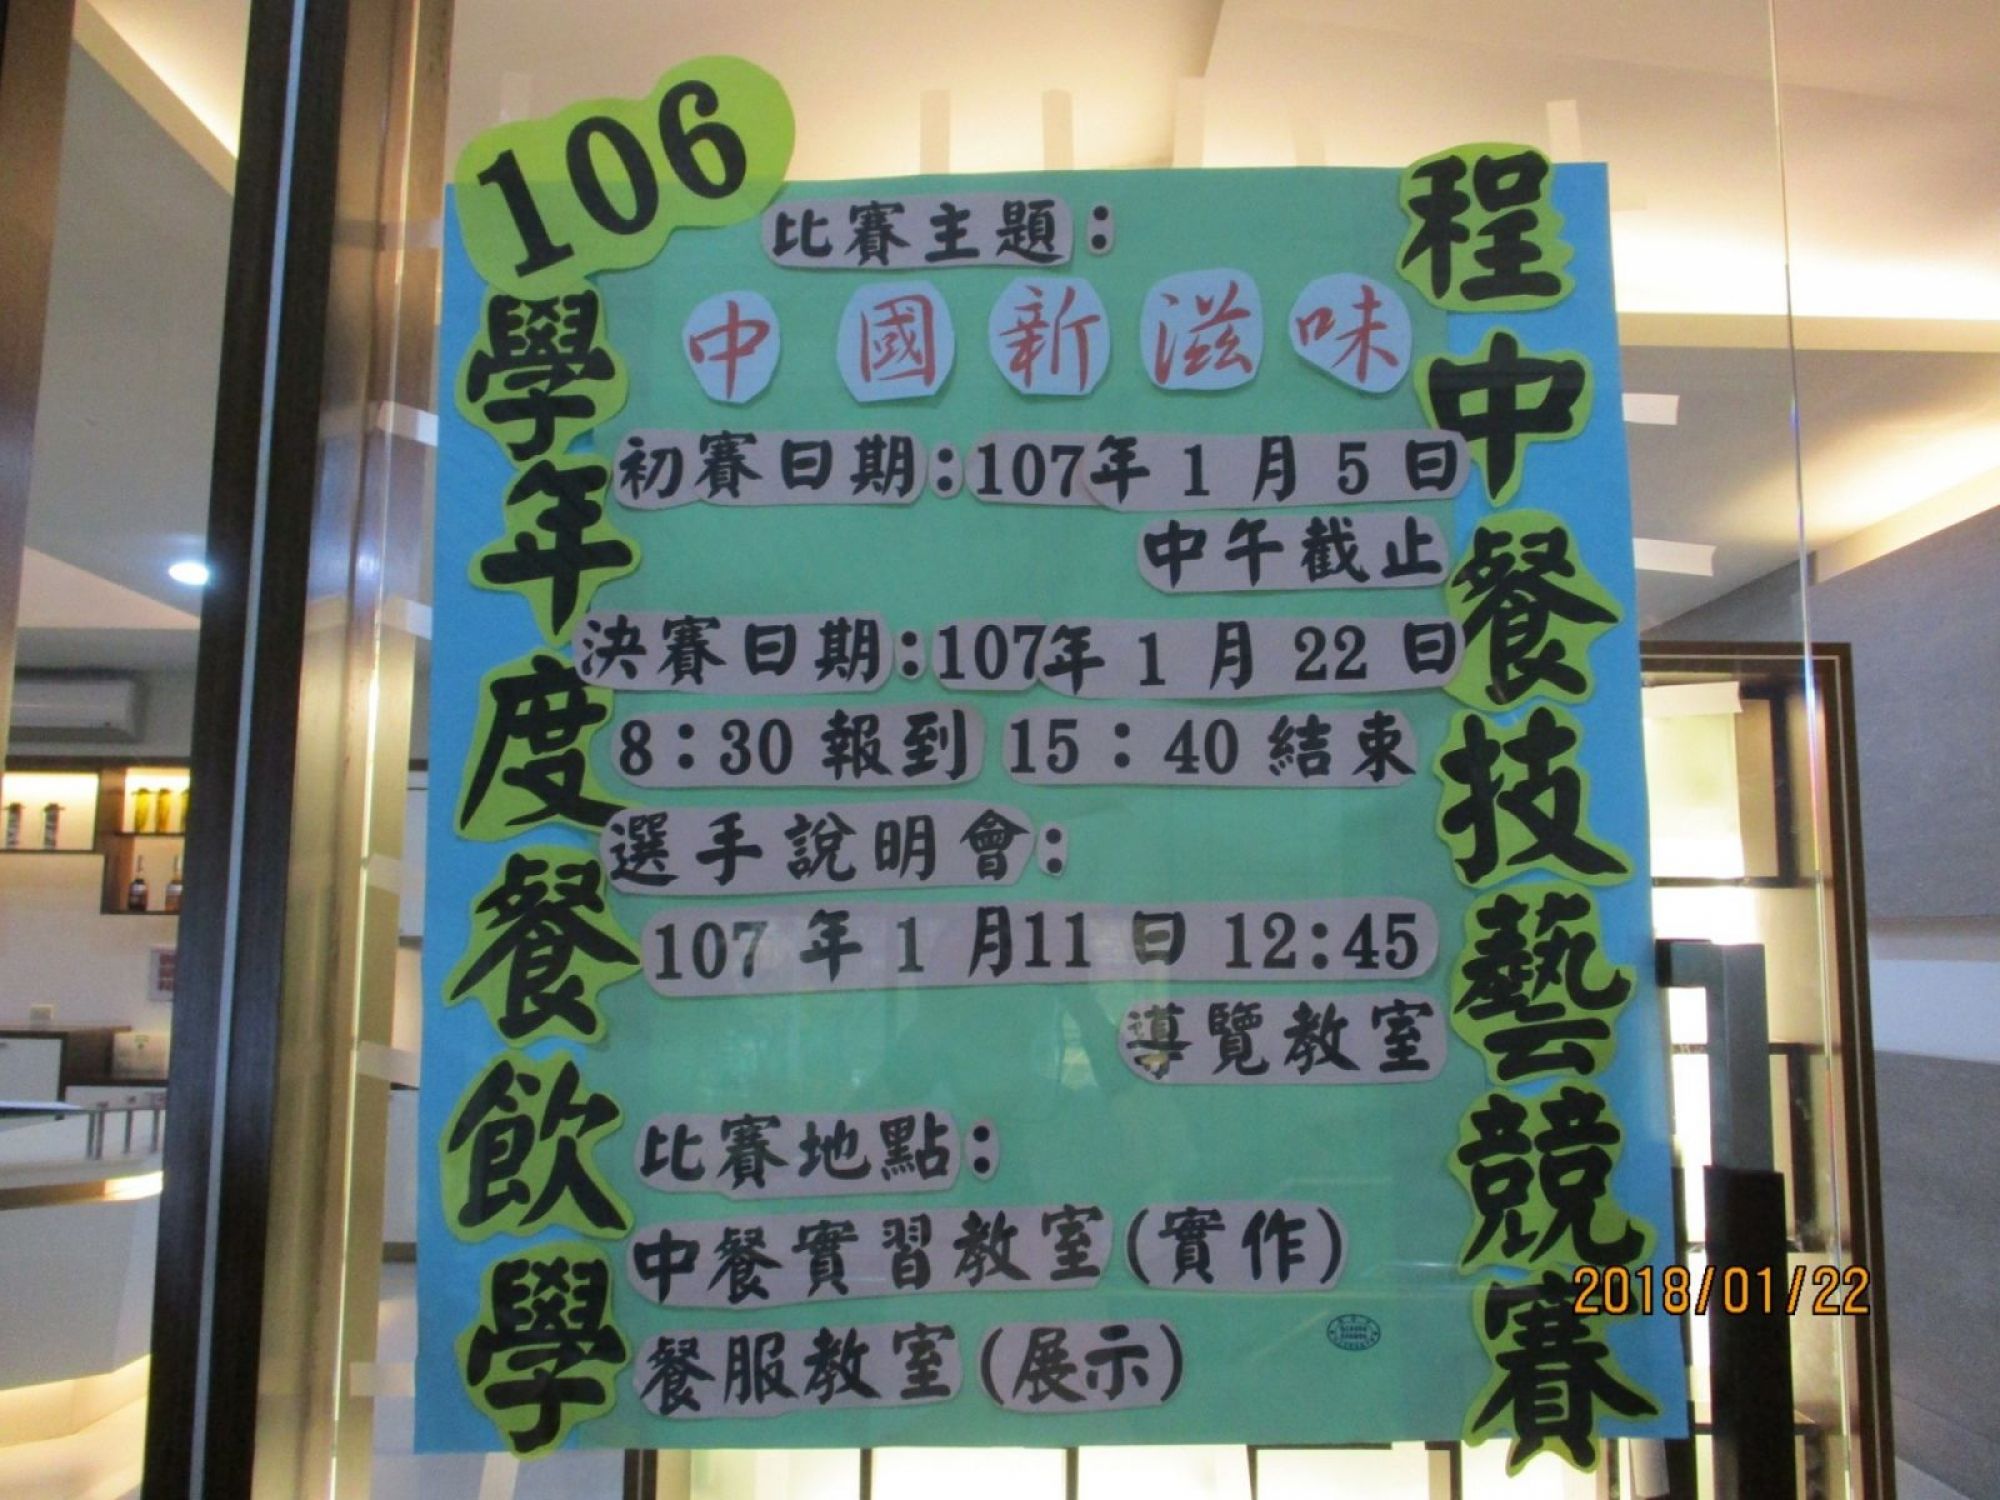 106
學年度餐飲學
程中餐技藝競賽
比賽主題：
中國新滋味
初賽日期：107年1月5日
中午截止
決賽日期：107年1月22日
8：30報到 15：40結束
選手說明會：
107年1月11日12:45
導覽教室
比賽地點：
中餐實習教室(實作)
餐服教室(展示)
2018/01/22